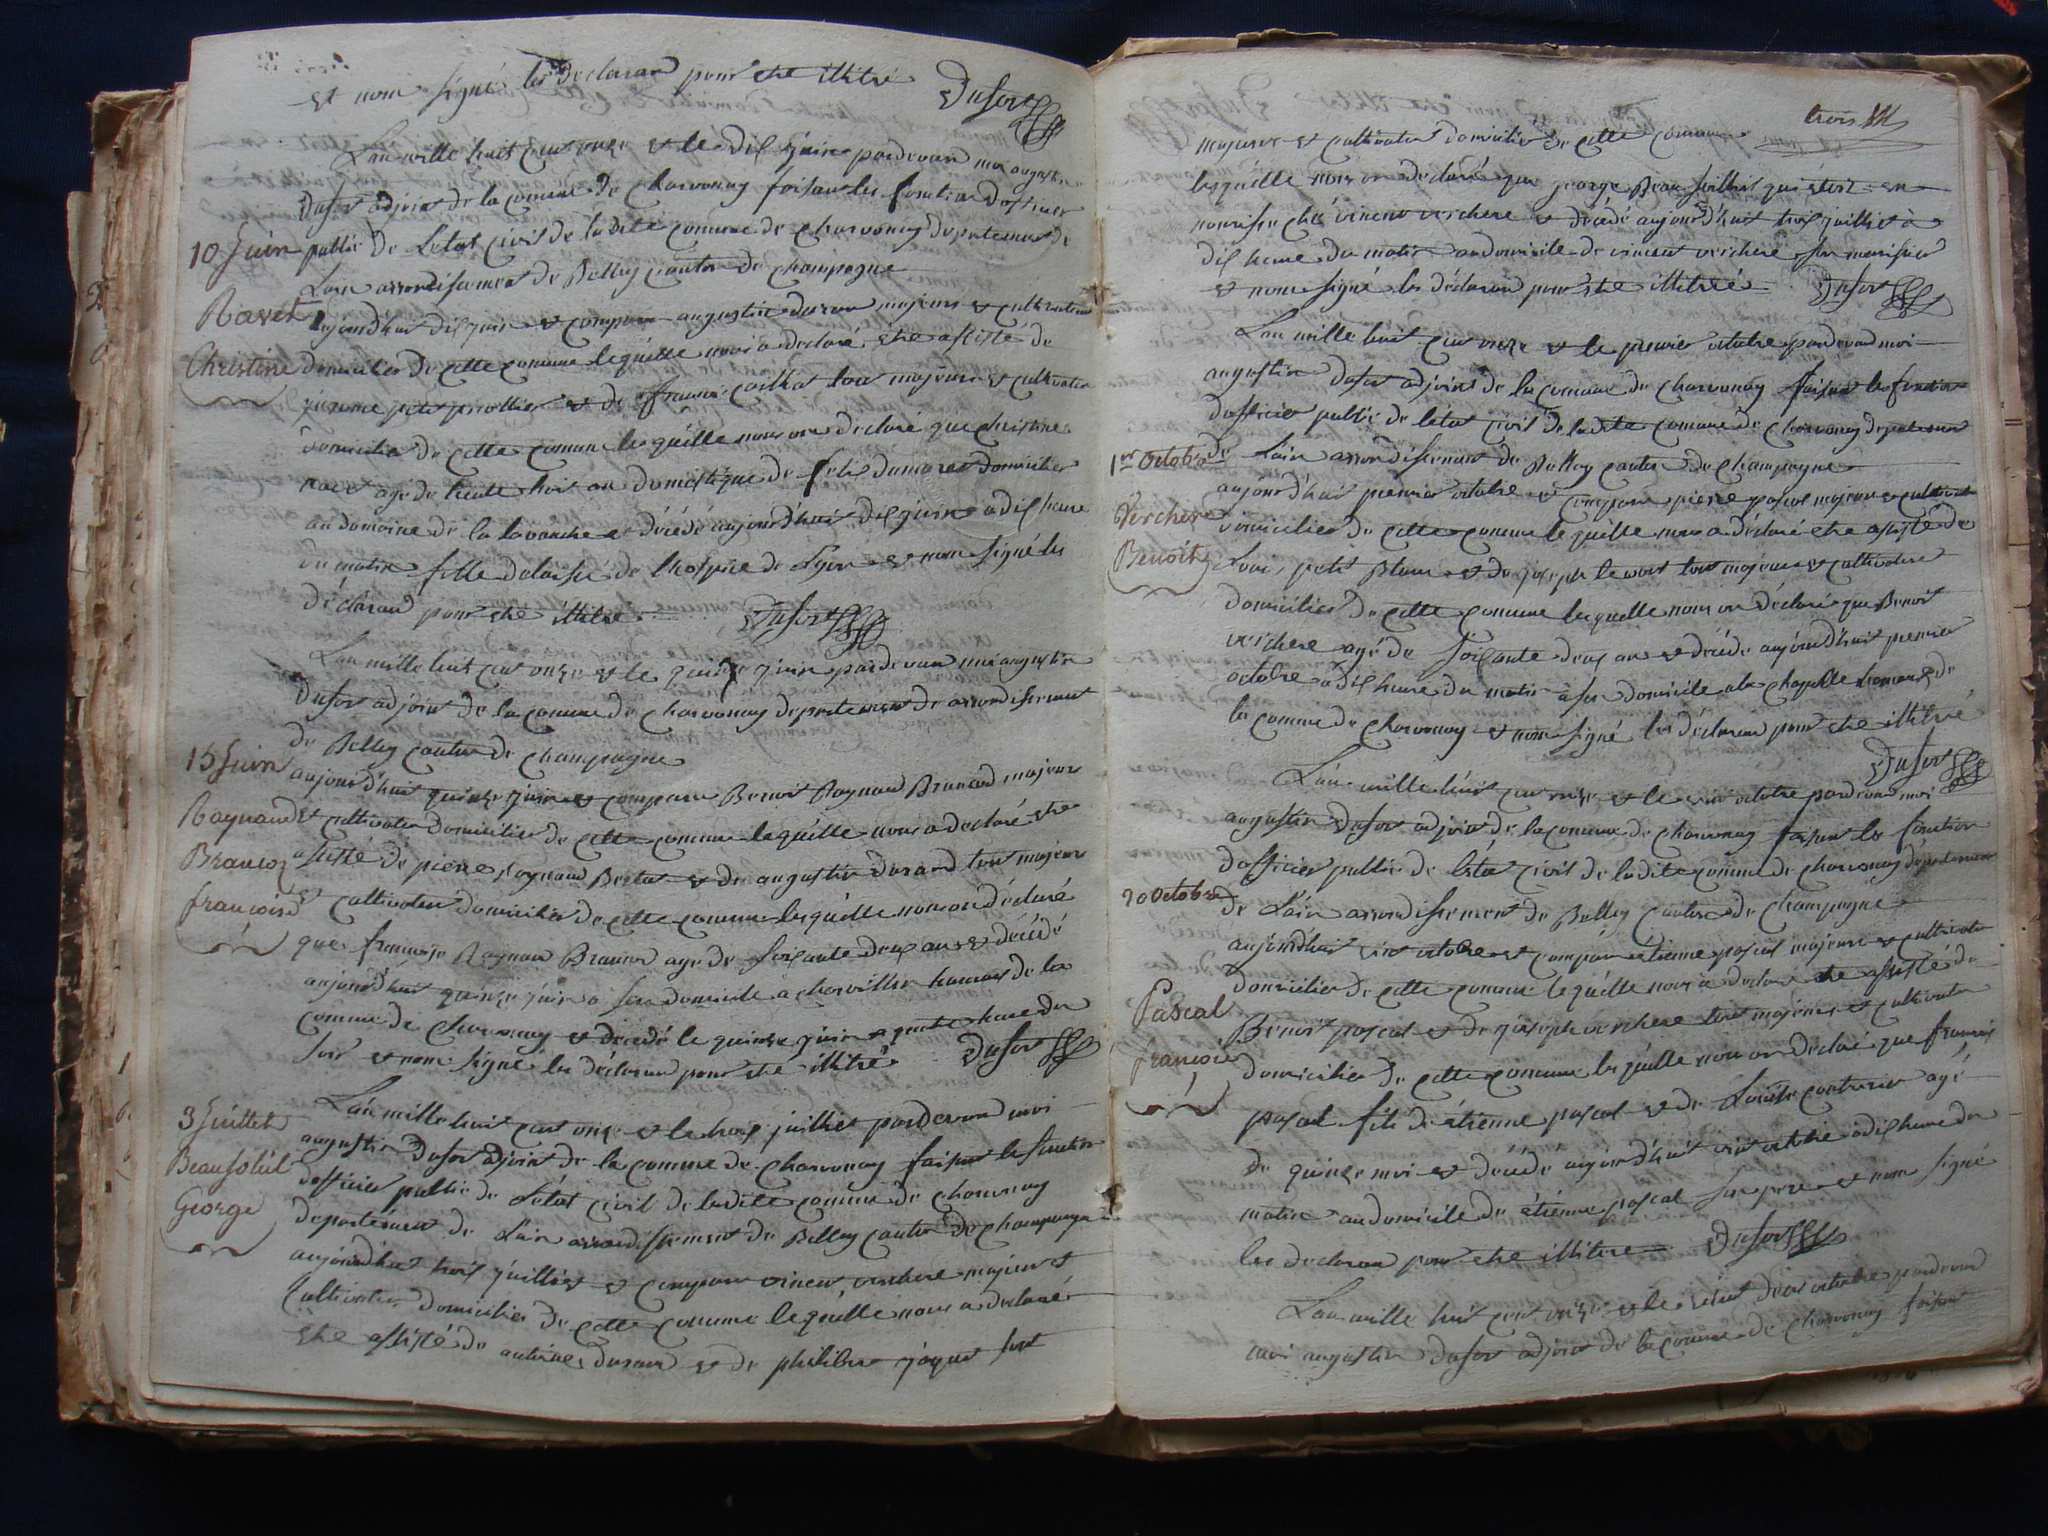 et nont signé les declaran pour etre illitré Dufor
Lan mille huit cent onze et le dix juin pardevan moi augustin
Dufor adjoint de la comune de Charvonay faisan les fonction doficier
10 Juin
public de Letat civil de ladite comune de Charvonay departement de
Lain arrondisement de Belley canton de Champagne
Ravet
aujourdhui dix juin et comparu augustin duran majeur et cultivateur
Christine
domicilier de cette comune lequelle nous a declaré etre asisté de
petit et de francoi tous majeur et cultivateur
domicilie de cette comune lesquelle nous ont declaré que christine
ravet agé de trente trois an domestique de felix domicilier
au domaine de la lavanche et décédé aujourdhui dix juin a dix heure
du matin fille delaisé de lhospice de Lyon et nont signé les
déclaran pour etre illitré Dufor
Lan mille huit cent onze et le quinze juin pardevan moi augustin
Dufor adjoint de la comune de Charvonay departement de arrondissement
de Belley canton de Champagne
15 Juin
aujourdhui quinze juin et comparu Benoit Raynaud Brancod majeur
Raynaud
et cultivateur domicilier de cette comune lequelle nous a declaré etre
Brancoz
asisté de piere raynaud et de augustin durand tous majeur
françoise
et cultivateur domicilier de cette comune lesquelle nous ont déclaré
que francoise Raynau agé de soixante deux an et décédé
aujourdhui quinze juin a son domicile a chervillin hameau de la
comune de Charvonay et decedé le quinze juin a quatre heure du
soir et nont signé les déclaran pour etre illitré Dufor
3 Juillet
Lan mille huit cent onze et le trois juillet pardevan moi
augustin dufor adjoint de la comune de Charvonay faisan les fonction
Beausoliel
dofficier public de Létat civil de ladite comune de Charvonay
George
departement de Lain arrondissement de Belley canton de Champagne
aujourdhui trois juillet et comparu vincent verchere majeur et
Cultivateur domicilier de cette comune lequelle nous a declaré
etre assisté de antoine duran et de philiber jaque tout
trois
majeur et cultivateur domicilier de cette comune
lesquelle nous on declaré que george Beau soilliel qui etoit en
nourisse ché vincent verchere et décédé aujourdhui trois juilliet à
dix heure du matin au domicile de vincent verchere son nourisier
et nont signé les déclaran pour etre illitré Dufor
Lan mille huit cent onze et le premier octobre pardevand moi
augustin dufor adjoint de la comune de Charvonay faisan les fonction
dofficier public de létat civil de ladite comune de Charvonay departement
1er Octobre
de Lain arrondissement de Belley canton de Champagne
aujourdhui premier octobre et comparu piere pascal majeur et cultivateur
Verchere
domicilier de cette comune lequelle nous a declaré etre assisté de
Benoit
Loui petit et de joseph tous majeur et cultivateur
domicilier de cette comune lesquelle nous on déclaré que Benoit
verchere agé de soixante deux an et décédé aujourdhui premier
octobre à dix heure du matin a son domicile a la Chapelle hameau de
la comune de Charvonay et nont signé les déclaran pour etre illitré
Dufor
Lan mille huit cent onze et le vint octobre pardevan moi
augustin Dufor adjoint de la comune de Charvonay faisan les fonction
dofficier public de létat civil de ladite comune de charvonay departement
20 Octobre
de Lain arrondissement de Belley canton de Champagne
aujourdhui vint octobre et comparu étienne pascal majeur et cultivateur
domicilier de cette comune lequelle nous a declaré etre assisté de
Pascal
Benoit pascal et de joseph verchere tous majeur et cultivateur
françois
domicilier de cette comune lesquelle nous on declaré que francois
pascal fils de étienne pascal et de Louise agé
de quinze moi et décédé aujourdhui vint octobre à dix heure du
matin au domicile de étienne pascal son pere et nont signé
les declaran pour etre illitere Dufor
Lan mille huit cent onze et le vint deux octobre pardevan
moi augustin dufor adjoint de la comune de Charvonay faisan